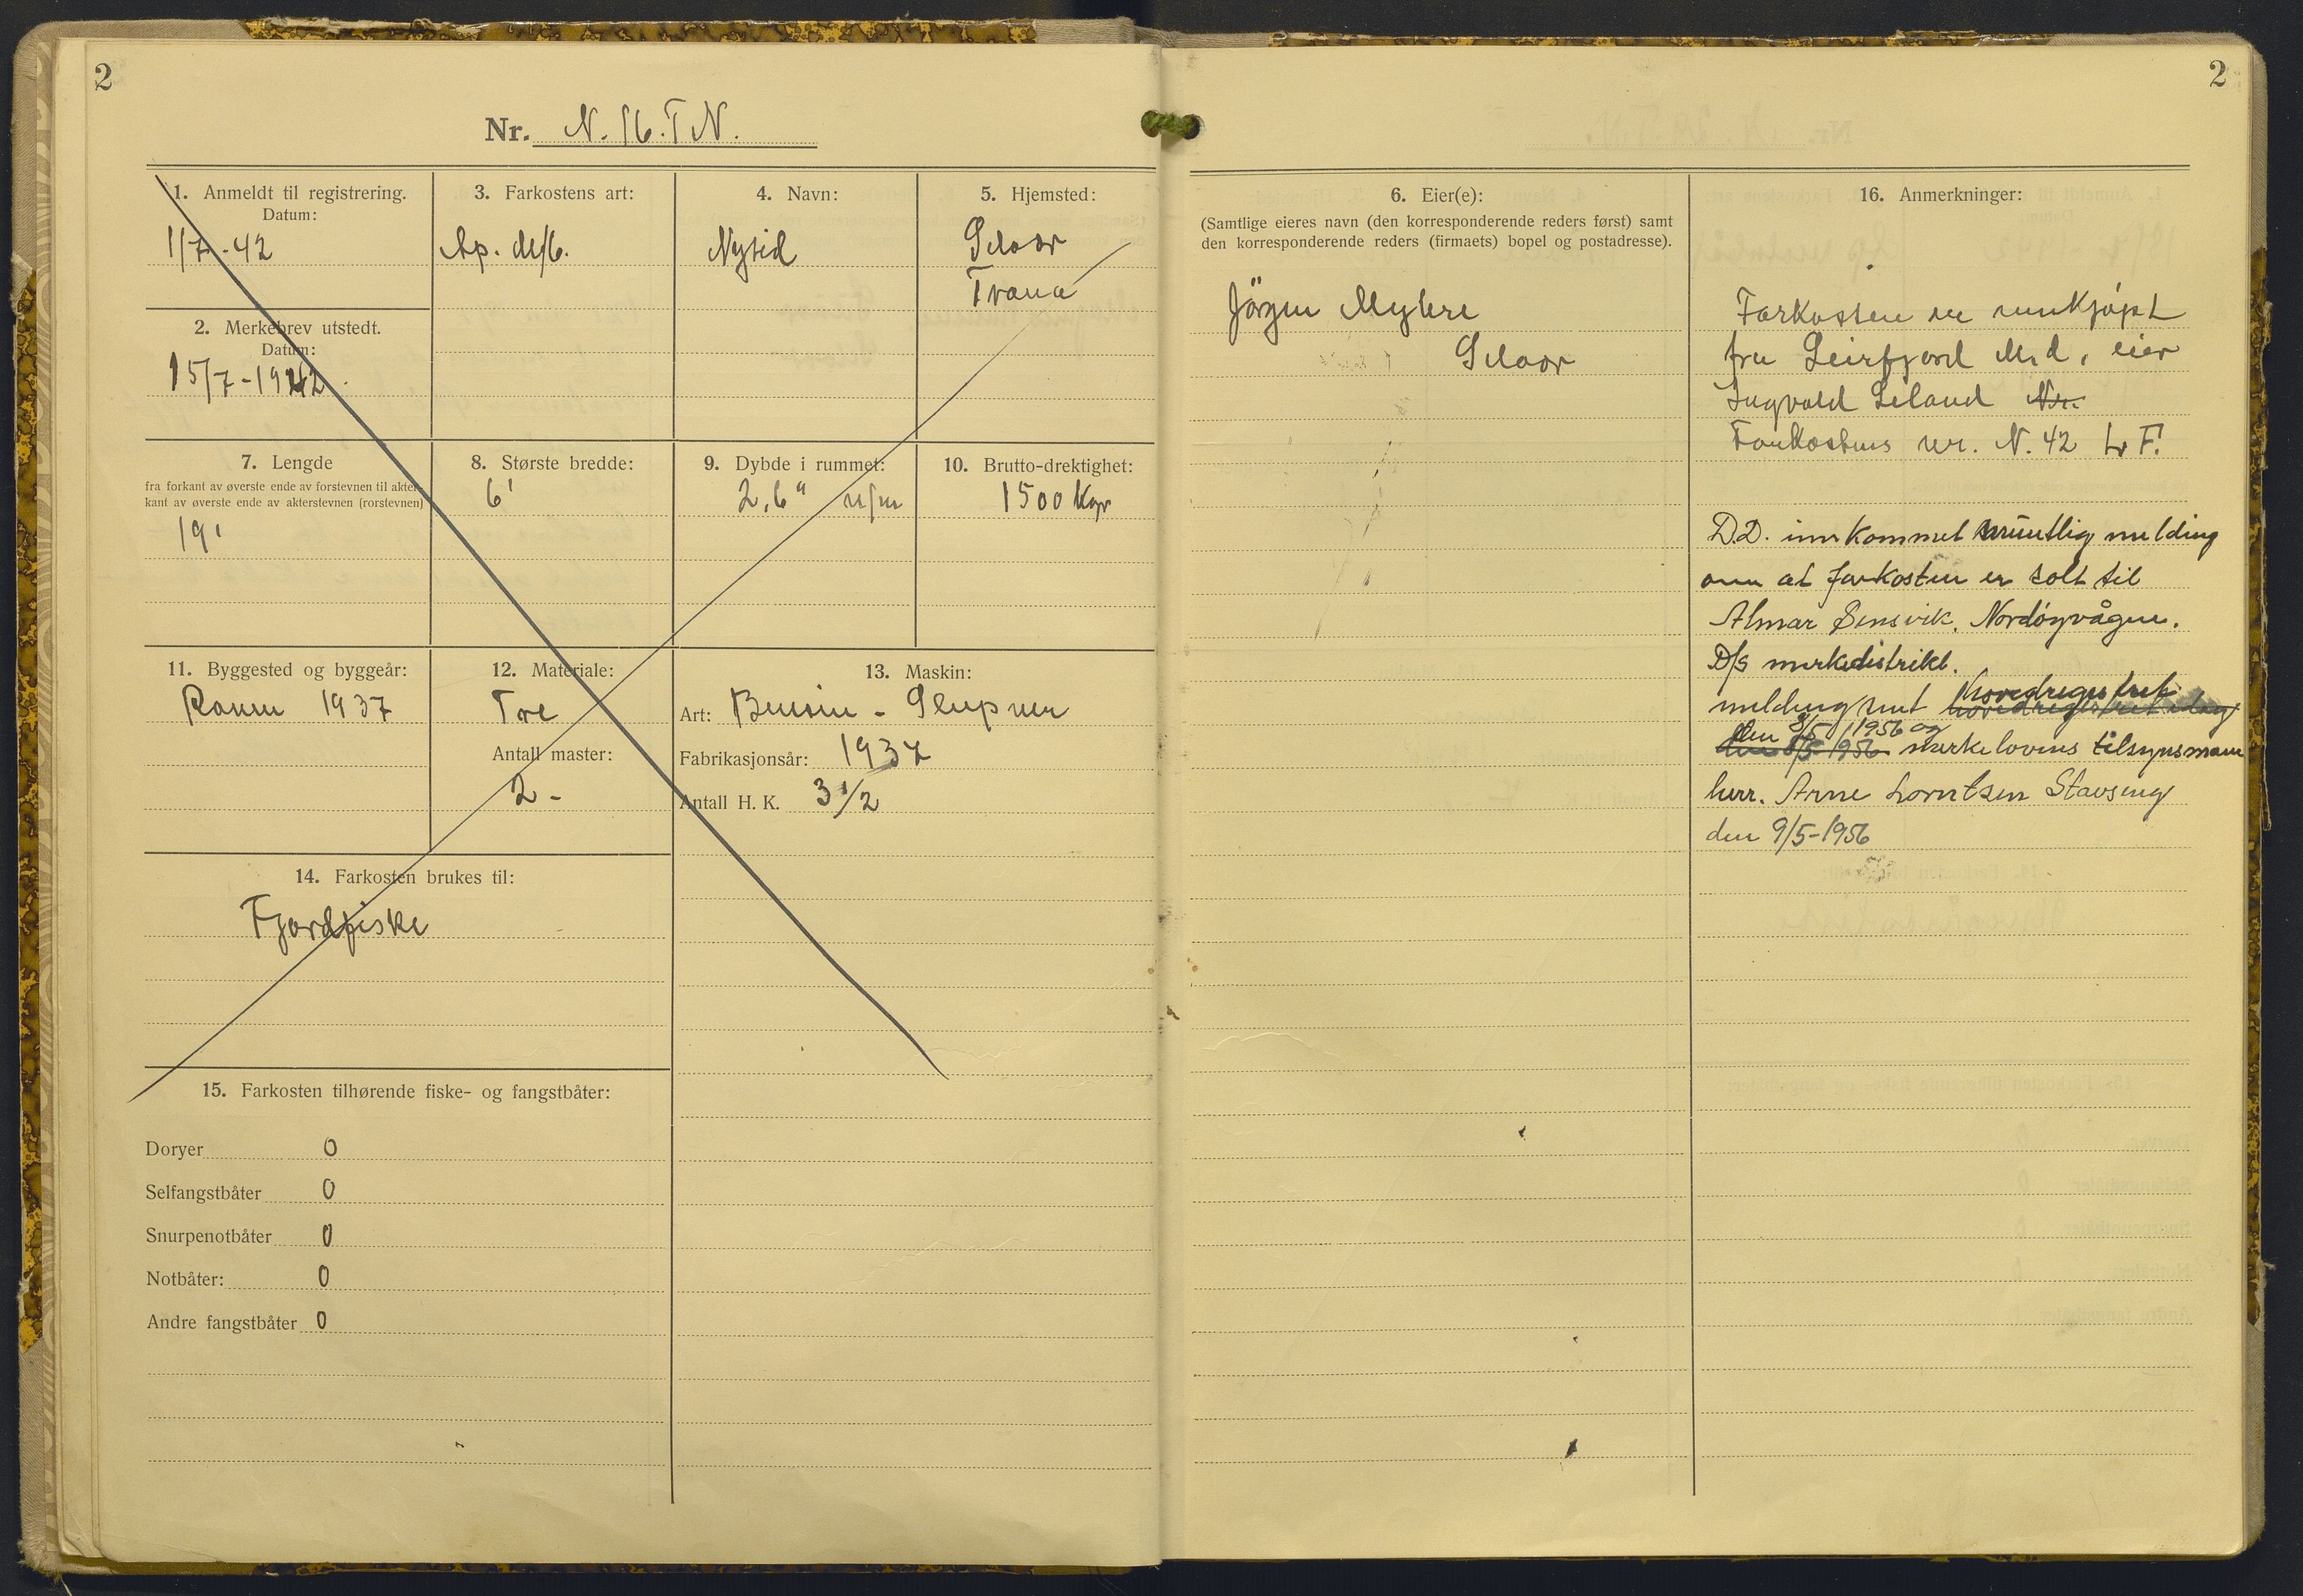 2
Nr. N. 16. T N.
1. Anmeldt til registrering.
Datum:
1/7 - 42
2. Merkebrev utstedt.
Datum:
15/7 - 1942
3. Farkostens art:
Åp. M/b.
4. Navn:
Nytid
5. Hjemsted:
Selvær
Træna
7. Lengde
fra forkant av øverste ende av forstevnen til akter-
kant av øverste ende av akterstevnen (rorstevnen)
19'
8. Største bredde:
6'
9. Dybde i rummet:
2,6"
10. Brutto-drektighet:
1500 Kgr
11. Byggested og byggeår:
Ranen 1937
12. Materiale:
Tre
Antall master:
2 -
13. Maskin:
Art: Bensin - Sleipner
Fabrikasjonsår: 1937
Antall H. K. 3 1/2
14. Farkosten brukes til:
Fjordfiske
15. Farkosten tilhørende fiske- og fangstbåter:
Doryer 0
Selfangstbåter 0
Snurpenotbåter 0
Notbåter: 0
Andre fangstbåter 0
2
6. Eier(e):
(Samtlige eieres navn (den korresponderende reders først) samt
den korresponderende reders (firmaets) bopel og postadresse).
Jörgen Myhre
Selvær
16. Anmerkninger:
Farkosten er innkjøpt
fra Leirfjord M.d, eier
Ingvald Leland Nr.
Farkostens nr. N. 42 L F.
D.D. innkommet muntlig melding
om at farkosten er solt til
Almar Sensvik, Nordøyvågen.
D/s merkedistrikt.
melding sent hovedregistret
den 8/5 1956 og
merkelovens tilsynsmann
herr. Arne Lorntsen Stavseng
den 9/5-1956